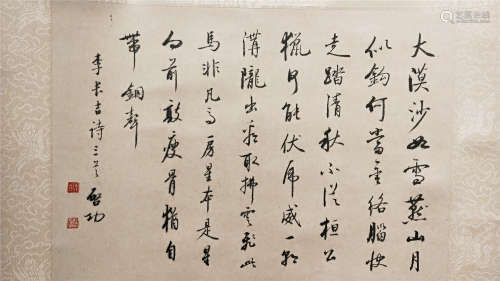 大漠沙如雪燕山月
似鈎何當金絡腦快
走踏清秋不從桓公
獵何能伏虎威一朝
溝隴出看取拂雲飛此
馬非凡馬房星本是星
向前敲瘦骨猶自
帶銅聲
李長吉詩三首 啓功